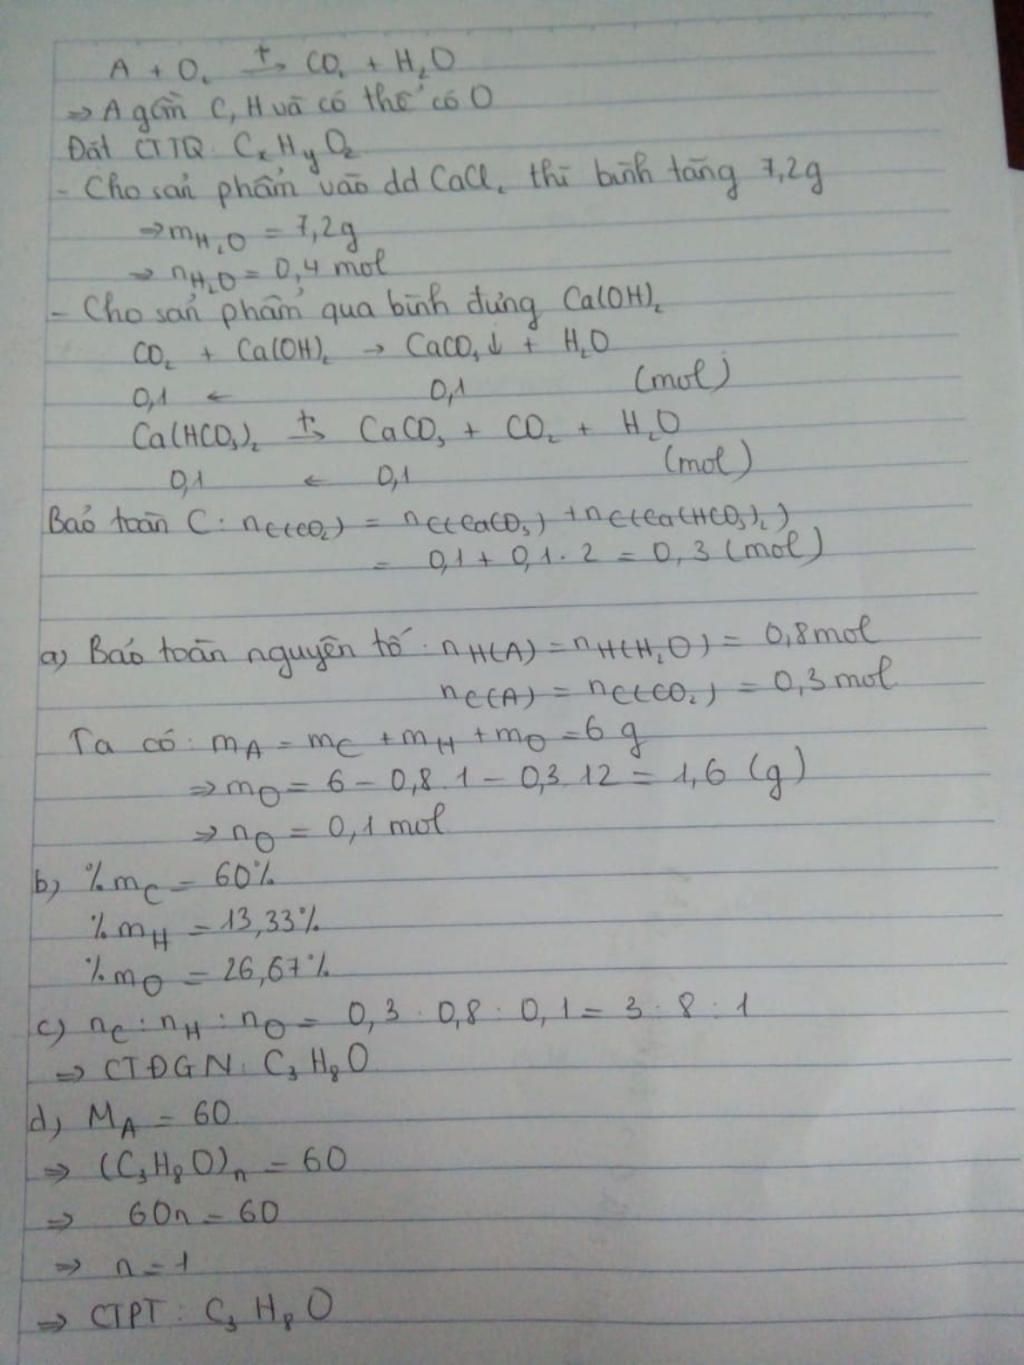 A + O₂ →(t°) CO₂ + H₂O
⇒ A gồm C, H và có thể có O
Đặt CTTQ: CxHyOz
- Cho sản phẩm vào dd CaCl₂ thì bình tăng 7,2g
⇒ mH₂O = 7,2g
⇒ nH₂O = 0,4 mol
- Cho sản phẩm qua bình đựng Ca(OH)₂
CO₂ + Ca(OH)₂ → CaCO₃↓ + H₂O
0,1 ← 0,1 (mol)
Ca(HCO₃)₂ →(t°) CaCO₃ + CO₂ + H₂O
0,1 ← 0,1 (mol)
Bảo toàn C: nC(CO₂) = nC(CaCO₃) + nC(Ca(HCO₃)₂)
= 0,1 + 0,1.2 = 0,3 (mol)
a) Bảo toàn nguyên tố: nH(A) = nH(H₂O) = 0,8mol
nC(A) = nC(CO₂) = 0,3 mol
Ta có: mA = mC + mH + mO = 6 g
⇒ mO = 6 - 0,8.1 - 0,3.12 = 1,6 (g)
⇒ nO = 0,1 mol
b) %mC = 60%
%mH = 13,33%
%mO = 26,67%
c) nC : nH : nO = 0,3 : 0,8 : 0,1 = 3 : 8 : 1
⇒ CTĐGN: C₃H₈O
d) MA = 60
⇒ (C₃H₈O)n = 60
⇒ 60n = 60
⇒ n = 1
⇒ CTPT: C₃H₈O